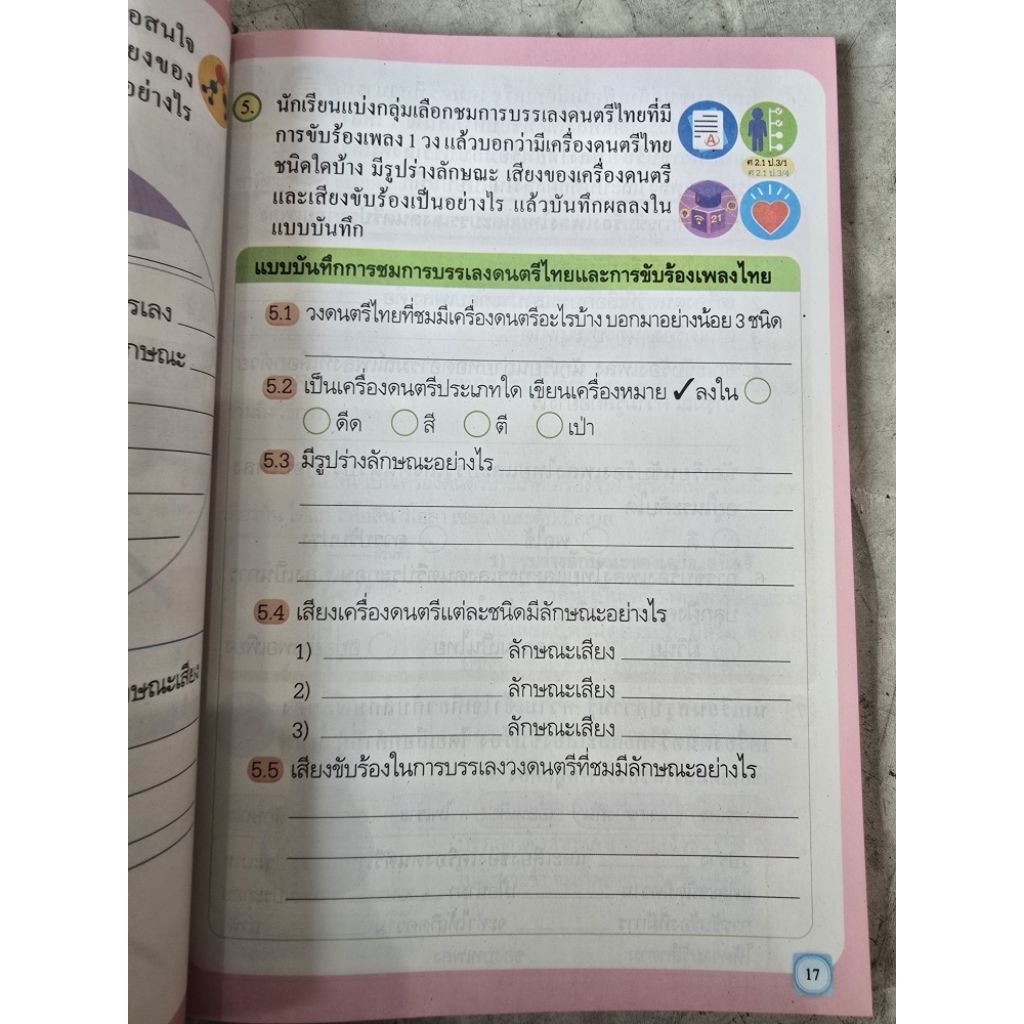 อสนใจ
ยงของ
อย่างไร
รเลง
ักษณะ
ษณะเสียง
5. นักเรียนแบ่งกลุ่มเลือกชมการบรรเลงดนตรีไทยที่มี
การขับร้องเพลง 1 วง แล้วบอกว่ามีเครื่องดนตรีไทย
ชนิดใดบ้าง มีรูปร่างลักษณะ เสียงของเครื่องดนตรี
และเสียงขับร้องเป็นอย่างไร แล้วบันทึกผลลงใน
แบบบันทึก
A
ศ 2.1 ป.3/1
ศ 2.1 ป.3/4
21
แบบบันทึกการชมการบรรเลงดนตรีไทยและการขับร้องเพลงไทย
5.1 วงดนตรีไทยที่ชมมีเครื่องดนตรีอะไรบ้าง บอกมาอย่างน้อย 3 ชนิด
5.2 เป็นเครื่องดนตรีประเภทใด เขียนเครื่องหมาย ✓ ลงใน ◯
◯ ดีด ◯ สี ◯ ตี ◯ เป่า
5.3 มีรูปร่างลักษณะอย่างไร
5.4 เสียงเครื่องดนตรีแต่ละชนิดมีลักษณะอย่างไร
1) ลักษณะเสียง
2) ลักษณะเสียง
3) ลักษณะเสียง
5.5 เสียงขับร้องในการบรรเลงวงดนตรีที่ชมมีลักษณะอย่างไร
17